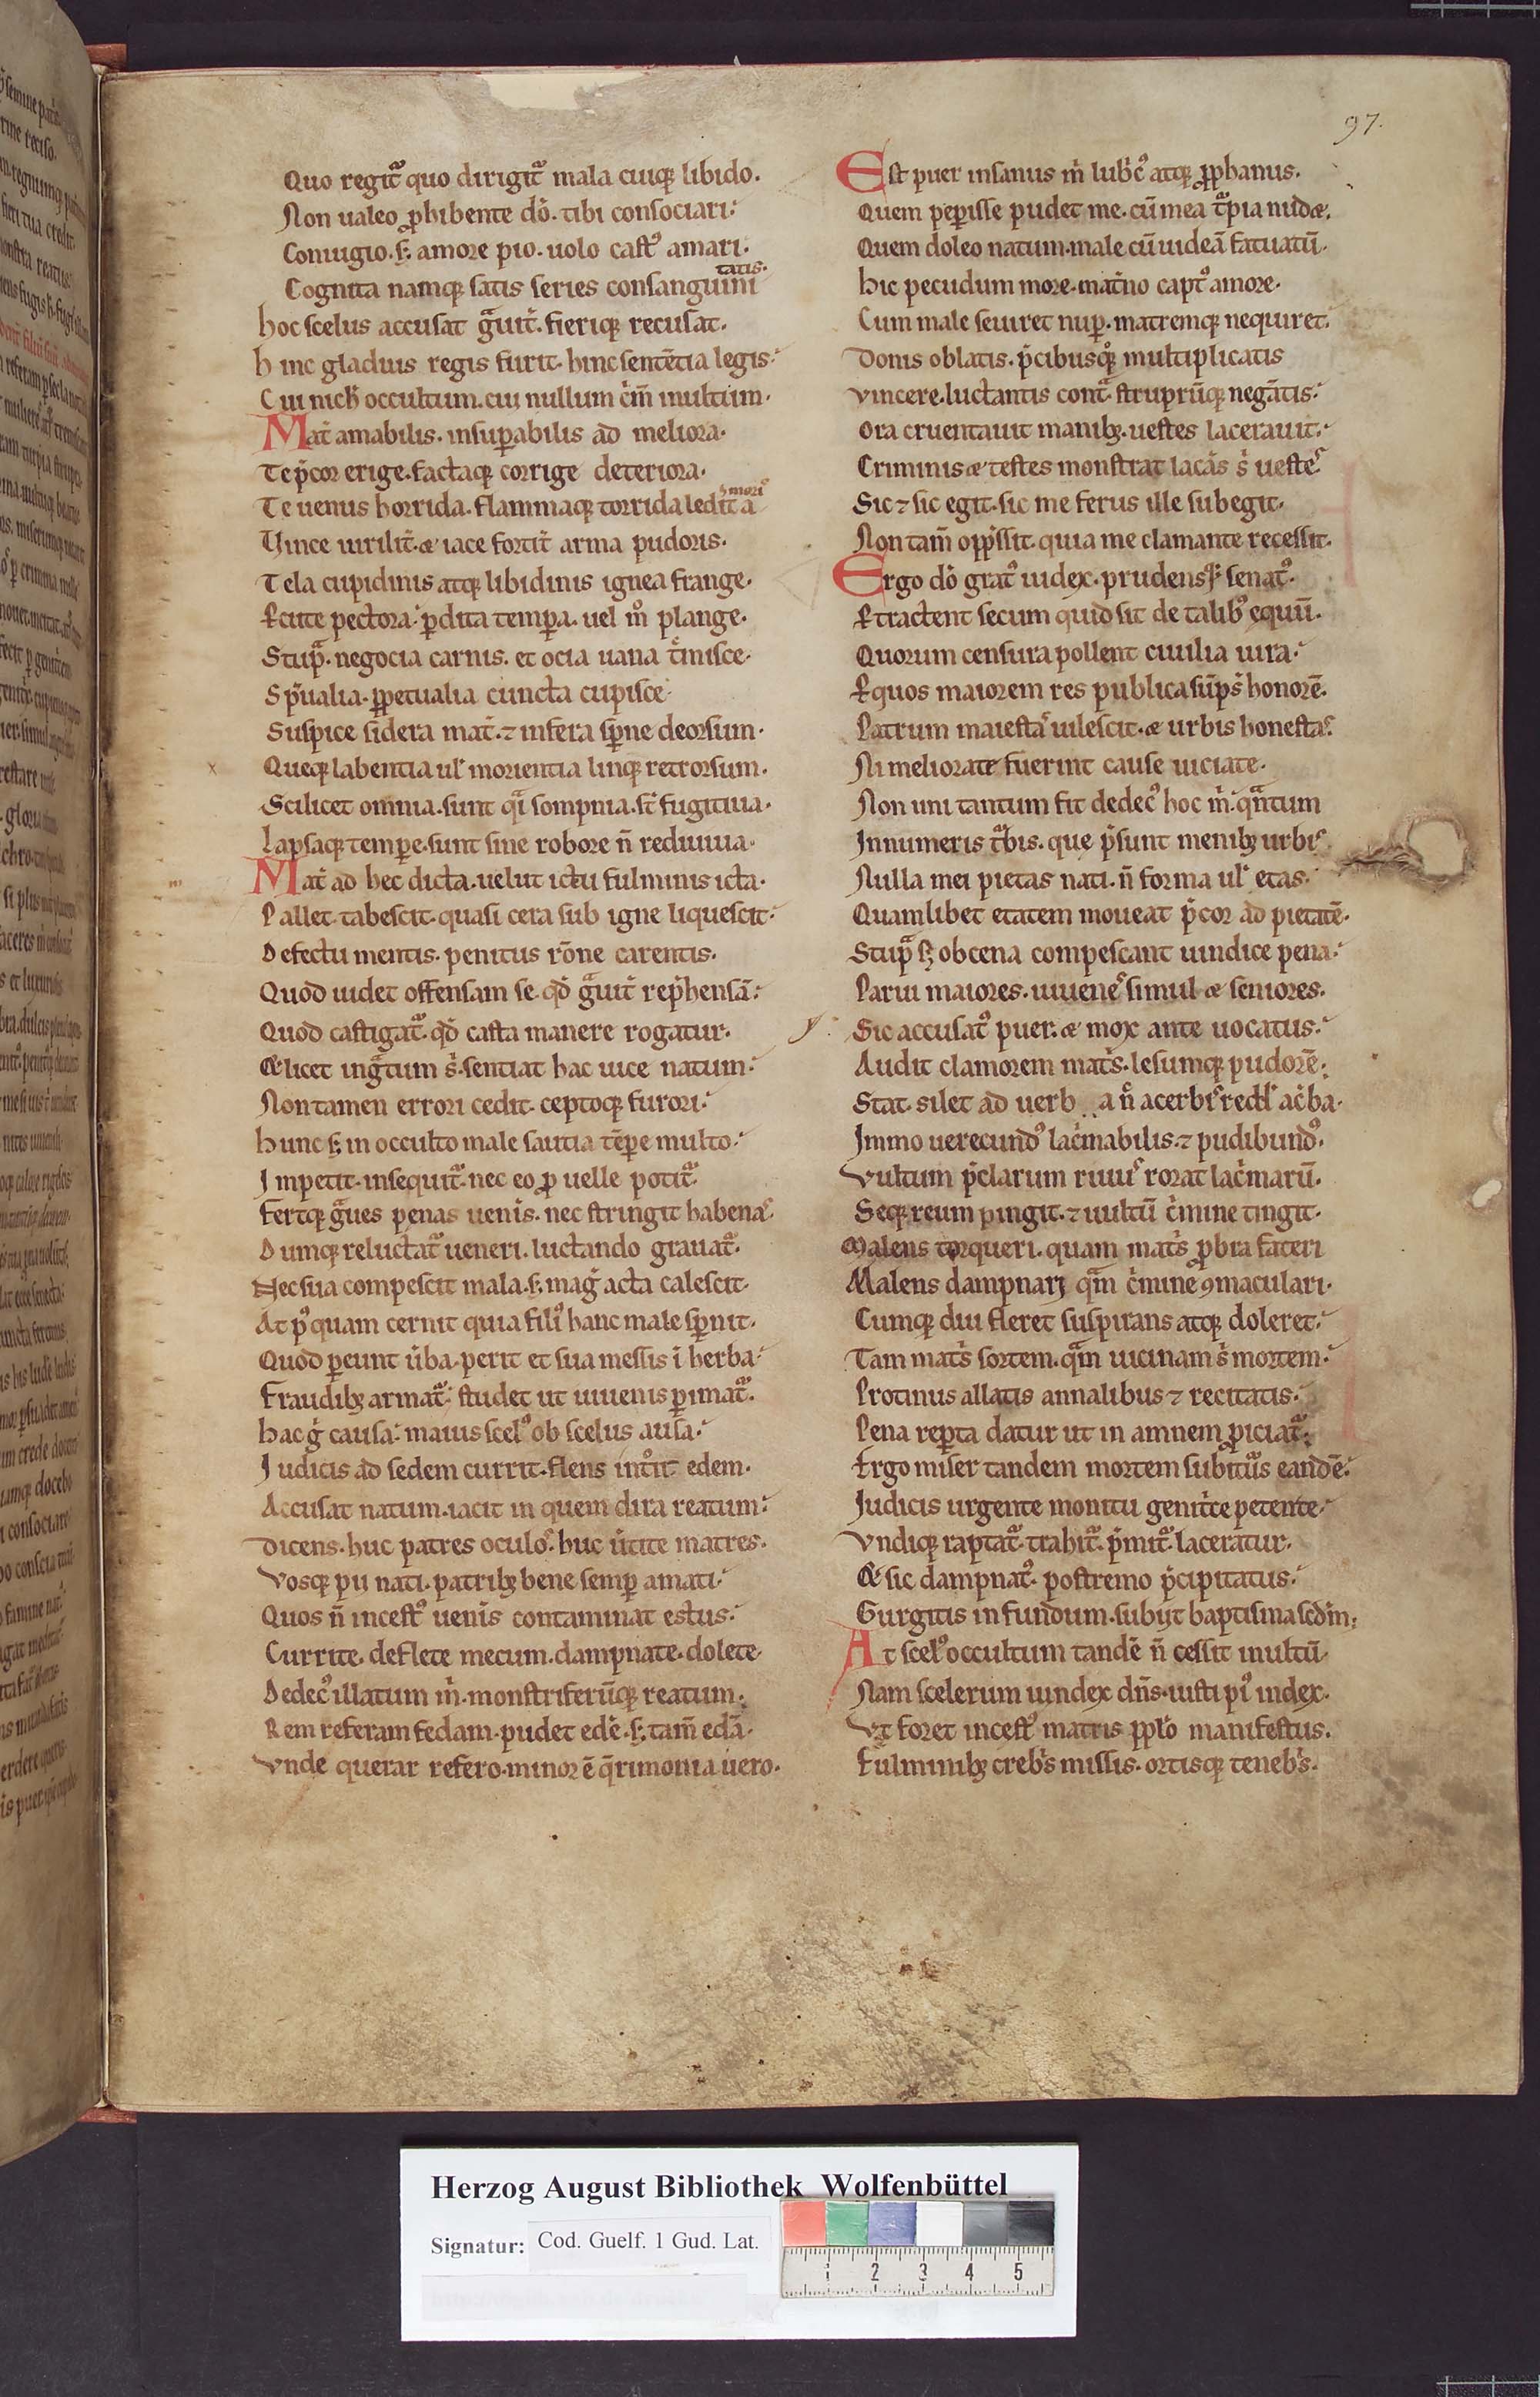 97.
Quo regitᷓ quo dirigitᷓ mala cuiq; libido.
Non ualeo ꝓhibente dō. tibi consociari.
Coniugio. s; amore pio. uolo castꝰ amari.
Cognita namq; satis series consanguini
tatis.
hoc scelus accusat gᷓuit̄. fieriq; recusat.
hinc gladius regis furit. hinc sentētia legis.
Cui nich̄ occultum. cui nullum c̄m̄ inultum.
Mat̄ amabilis. insuꝑabilis ad meliora.
Te p̄cor erige. factaq; corrige deteriora.
Te uenus horrida. flammaq; torrida ledit a
Vince uirilit̄. & iace fortit̄ arma pudoris.
Tela cupidinis atq; libidinis ignea frange.
Rcute pectora. ꝑdita temꝑa. uel m̊ plange.
Stupᷓ. negocia carnis. et ocia uana t̄misce.
Sp̄ualia. ꝑpetualia cuncta cupisce.
Suspice sidera mat̄. ⁊ infera sꝑne deorsum.
Queq; labentia ul̄ morientia linq; retrorsum.
Scilicet omnia. sunt q̄i sompnia. st̄ fugitiua.
Lapsaq; temꝑe. sunt sine robore n̄ rediuiua.
Mat̄ ad hec dicta. uelut ictu fulminis icta.
Pallet. tabescit. quasi cera sub igne liquescit.
Defectu mentis. penitus rōne carentis.
Quod uidet offensam se. qd̄ gᷓuit̄ rep̄hensā.
Quod castigatᷓ. qd̄ casta manere rogatur.
& licet ingᷓtum s̄. sentiat hac uice natum.
Non tamen errori cedit. ceptoq; furori.
hunc s; in occulto male saucia tēꝑe multo.
Impetit. insequitᷓ. nec eo ꝓ uelle potitᷓ.
Fertq; gᷓues penas uenis̄. nec stringit habenas.
Dumq; reluctatᷓ ueneri. luctando grauatᷓ.
Nec sua compescit mala. s; mag̊ acta calescit.
At pꝰquam cernit quia filiꝰ hanc male sꝑnit.
Quod ꝑeunt ūba. perit et sua messis ī herba.
Fraudib; armatᷓ. studet ut iuuenis ꝑimatᷓ.
hac g̊ causa. maius scelꝰ ob scelus ausa.
Judicis ad sedem currit. flens int̊it edem.
Accusat natum. iacit in quem dira reatum.
Dicens. huc patres oculos. huc ūtite matres.
Vosq; pii nati. patrib; bene semꝑ amati.
Quos n̄ incestꝰ uenis̄ contaminat estus.
Currite. deflete mecum. dampnate. dolete.
Dedecꝰ illatum m̄. monstriferūq; reatum.
Rem referam fedam. pudet edē. s; tam̄ edā.
Vnde querar refero. minor ē q̄rimonia uero.
Est puer insanus m̄ lub̄cꝰ atq; ꝓphanus.
Quem peꝑisse pudet me. cū mea tᷓpia nudæ.
Quem doleo natum. male cū uideā fatuatū.
hic pecudum more. mat̄no captꝰ amore.
Cum male seuiret nuꝑ. matremq; nequiret.
Donis oblatis. p̄cibusq; multiplicatis
Vincere. luctantis contᷓ. strupriūq; negātis.
Ora cruentauit manib;. uestes lacerauit.
Criminis & testes monstrat lacās s̄ uestes
Sic ⁊ sic egit. sic me ferus ille subegit.
Non tam̄ opp̄ssit. quia me clamante recessit.
Ergo dō gratꝰ iudex. prudensq; senatꝰ.
Rtractent secum quid sit de talibꝰ equū.
Quorum censura pollent ciuilia iura.
Equos maiorem res publica sūps̄ honorē.
Patrum maiestas uilescit. & urbis honestas.
Ni meliorate fuerint cause uiciate.
Non uni tantum fit dedecꝰ hoc m̄. qᷓntum
Innumeris tᷓbis. que p̄sunt menib; urbis.
Nulla mei pietas nati. n̄ forma ul̄ etas.
Quamlibet etatem moueat p̄cor ad pietatē.
Stupᷓ s; obcena compescant uindice pena.
Parui maiores. iuuenes simul & seniores.
Sic accusatꝰ puer. & mox ante uocatus.
Audit clamorem mat̄s. lesumq; pudorē.
Stat. silet ad uerb a n̄ acerbis redd̄ ac̄ba.
Immo uerecundꝰ lac̄mabilis. ⁊ pudibundꝰ.
Vultum p̄clarum riuus rorat lac̄marū.
Seq; reum pingit. ⁊ uultū c̄mine tingit.
Malens torqueri. quam mat̄s ꝓbra fateri
Malens dampnari qᷓm c̄mine ꝯmaculari.
Cumq; diu fleret suspirans atq; doleret.
Tam mat̄s sortem. qᷓm uicinam s̄ mortem.
Protinus allatis annalibus ⁊ recitatis.
Pena reꝑta datur ut in amnem ꝓiciatᷓ.
Ergo miser tandem mortem subitᷓus eandē.
Judicis urgente monitu genit̄ce petente.
Vndiq; raptatᷓ. trahitᷓ. p̄mitᷓ. laceratur.
& sic dampnatꝰ. postremo p̄cipitatus.
Gurgitis in fundum. subiit baptisma scd̄m.
At scelꝰ occultum tandē n̄ cessit inultū.
Nam scelerum uindex dn̄s. iusti piꝰ index.
Vt foret incestꝰ matris pp̄lo manifestus.
Fulminib; creb̄s missis. ortisq; teneb̄s.
Herzog August Bibliothek Wolfenbüttel
Signatur: Cod. Guelf. 1 Gud. Lat.
1 2 3 4 5